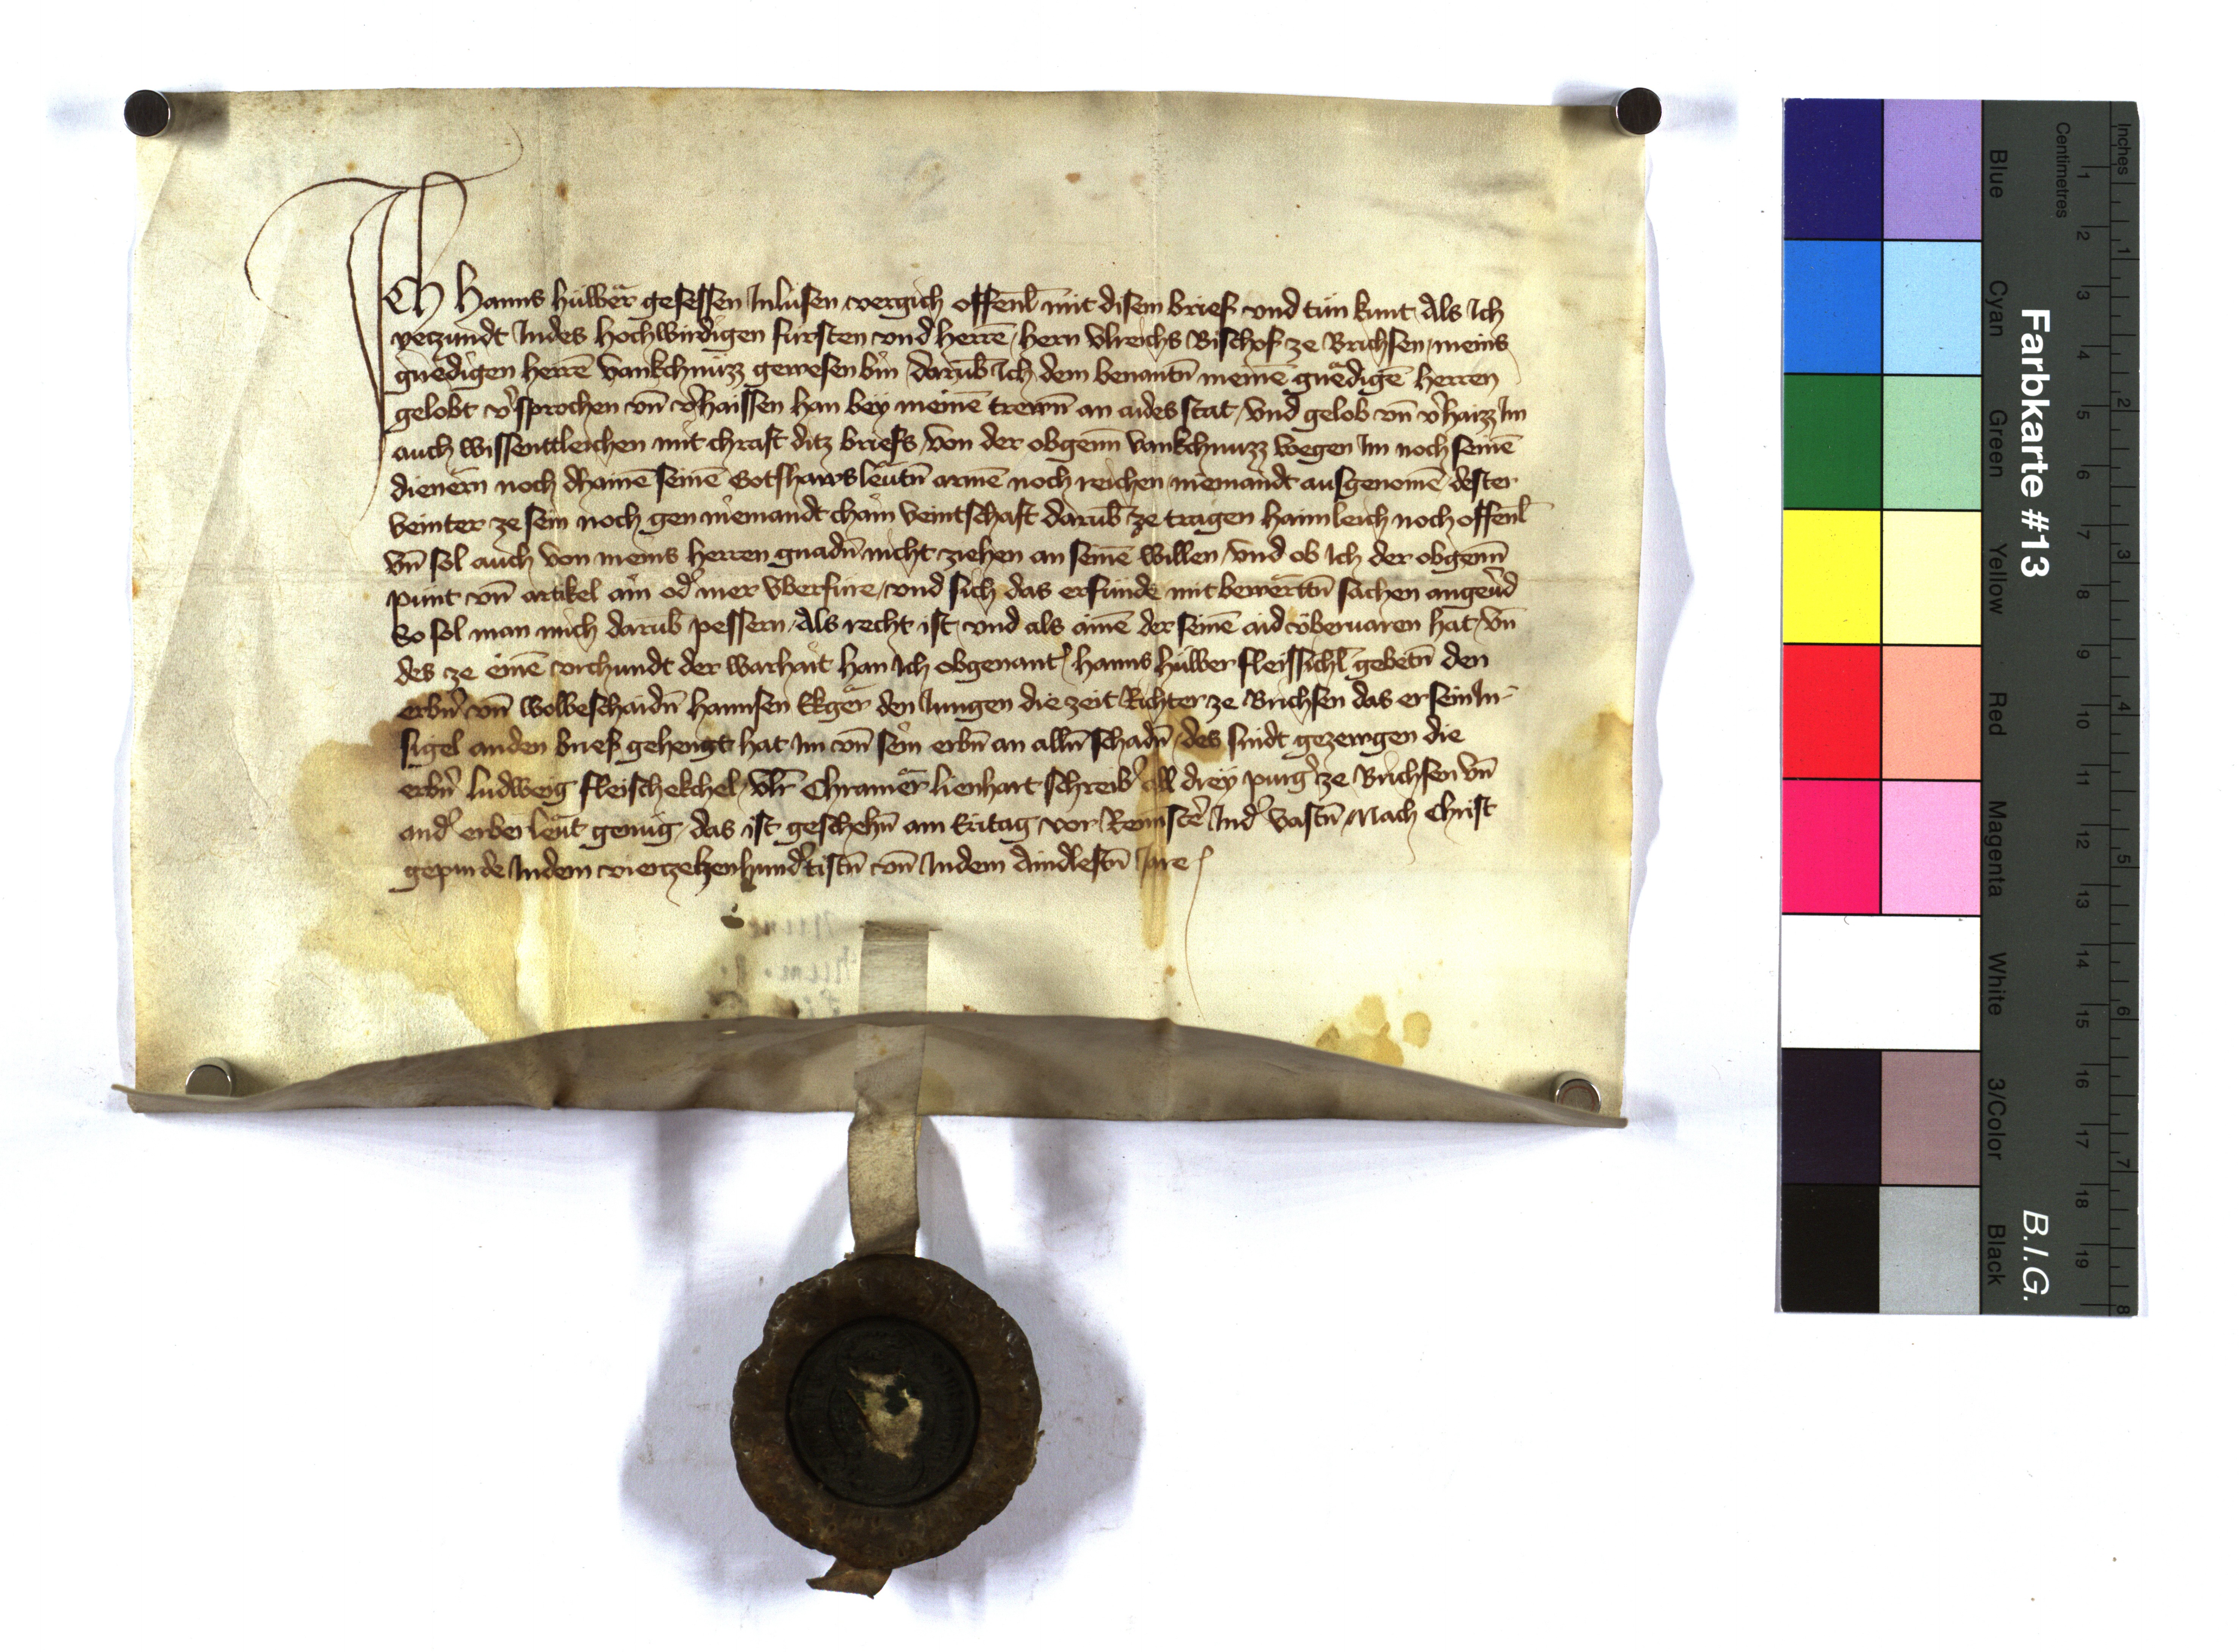 Ich Hanns hülbër gesessen Inlüsen vergich offenl̄ mit disem brief vnd tün kunt Als Ich
yeczundt Indes hochwirdigen fürsten vnd herrē hern Vlreichs Bischof ze Brichsen meins
gnedigen herrē vankchnüzz gewesen bin darūb Ich dem benantn̄ meinē gnëdigē herren
gelobt v̓sprochen vn̄ v̓haissen han bey meinē trewn̄ an aides stat vnd gelob vn̄ v̓haizz Im
auch wissenttleichen mit chraft ditz briefs von der obgenn̄ vankchnuzz wegen Im noch seinē
dienern noch dhainē seinē Gotshaws leütn̄ armē noch reichen niemandt ausgenomē dester
veinter ze sein noch gen niemandt chain veintschaft darūb ze tragen haimleich noch offenl̄
vn̄ sol auch von meins herren gnadn̄ nicht ziehen an seinē willen vnd ob Ich der obgenn̄
punt vn̄ artikel ain od̓ mer vberfüre vnd sich das erfunde mit bewërttn̄ sachen angeu̓d
So sol man mich darūb pessern Als recht ist vnd als ainē der seinē aid vberuaren hat vn̄
des ze einē vrchundt der warhait han Ich obgenant̓ hanns hülber fleissichl̄ gebetn̄ den
erbn̄ vn̄ wolbeschaidn̄ hannsen Ekgër den Jungen die zeit Richter ze Brichsen das er sein In-
sigel anden brief gehengt hat Im vn̄ sein erbn̄ an alln̄ schadn̄ des sindt gezewgen die
erbn̄ ludweig fleischekchel Vlr̄ Chramër lienhart schreib̓ all drey purg̓ ze Brichsen vn̄
and̓ erber leüt genüg das ist geschehn̄ am Eritag vor Reminiscē Ind̓ vastn̄ Nach Christ
gepurde Indem vierzehenhund̓tistn̄ vn̄ Indem Aindleftn̄ Jare
Farbkarte #13
B.I.G.
Blue
Cyan
Green
Yellow
Red
Magenta
White
3/Color
Black
Centimetres
1 2 3 4 5 6 7 8 9 10 11 12 13 14 15 16 17 18 19
Inches
1 2 3 4 5 6 7 8